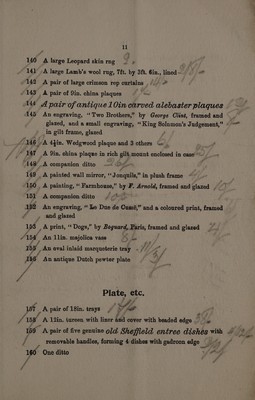 11
140 A large Leopard skin rug
141 A large Lamb's wool rug, 7ft. by 3ft. 6in., lined
142 A pair of large crimson rep curtains
143 A pair of 9in. china plaques
144 A pair of antique 10in carved alebaster plaques
145 An engraving, "Two Brothers," by George Clint, framed and
glazed, and a small engraving, "King Solomon's Judgement,"
in gilt frame, glazed
146 A 4½in. Wedgwood plaque and 3 others
147 A 9in. china plaque in rich gilt mount enclosed in case
148 A companion ditto
149 A painted wall mirror, "Jonquils," in plush frame
150 A painting, "Farmhouse," by F. Arnold, framed and glazed
151 A companion ditto
152 An engraving, "Le Duc de Cumé," and a coloured print, framed
and glazed
153 A print, "Dogs," by Regnard, Paris, framed and glazed
154 An 11in. majolica vase
155 An oval inlaid marqueterie tray
156 An antique Dutch pewter plate
Plate, etc.
157 A pair of 18in. trays
158 A 12in. tureen with liner and cover with beaded edge
159 A pair of five genuine old Sheffield entree dishes with
removable handles, forming 4 dishes with gadroon edge
160 One ditto